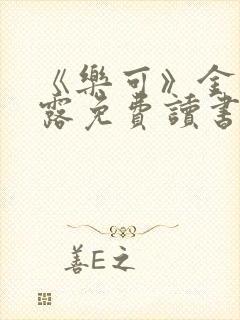 《樂可》金
露免費讀書
善E之